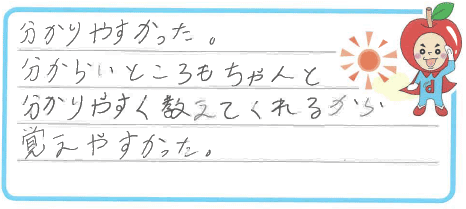 分かりやすかった。
分からいところもちゃんと
分かりやすく教えてくれるから
覚えやすかった。
d